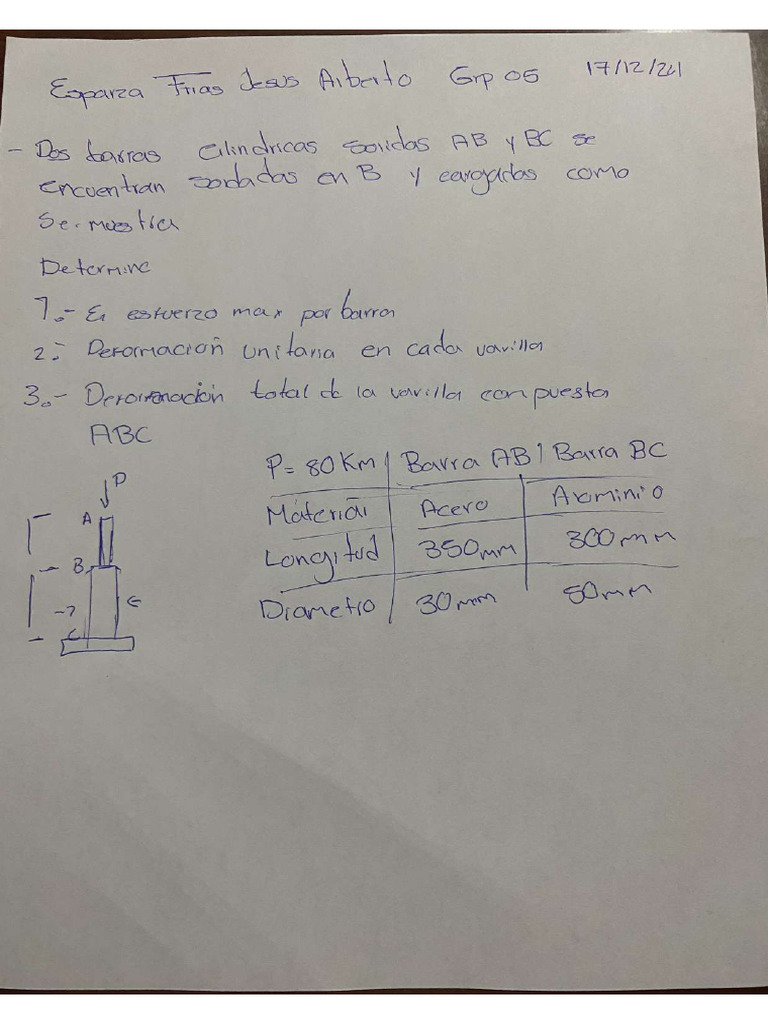 Esparza Frias Jesus Alberto Grp 05 17/12/201
- Dos barras cilindricas solidas AB y BC se
encuentran soldadas en B y cargadas como
se muestra
Determine
1.- El esfuerzo max por barra
2.- Deformación unitaria en cada varilla
3.- Deformación total de la varilla compuesta
ABC
P= 80 Km Barra AB Barra BC
Material Acero Aluminio
Longitud 350mm 300mm
Diametro 30mm 50mm
P
A
B
C